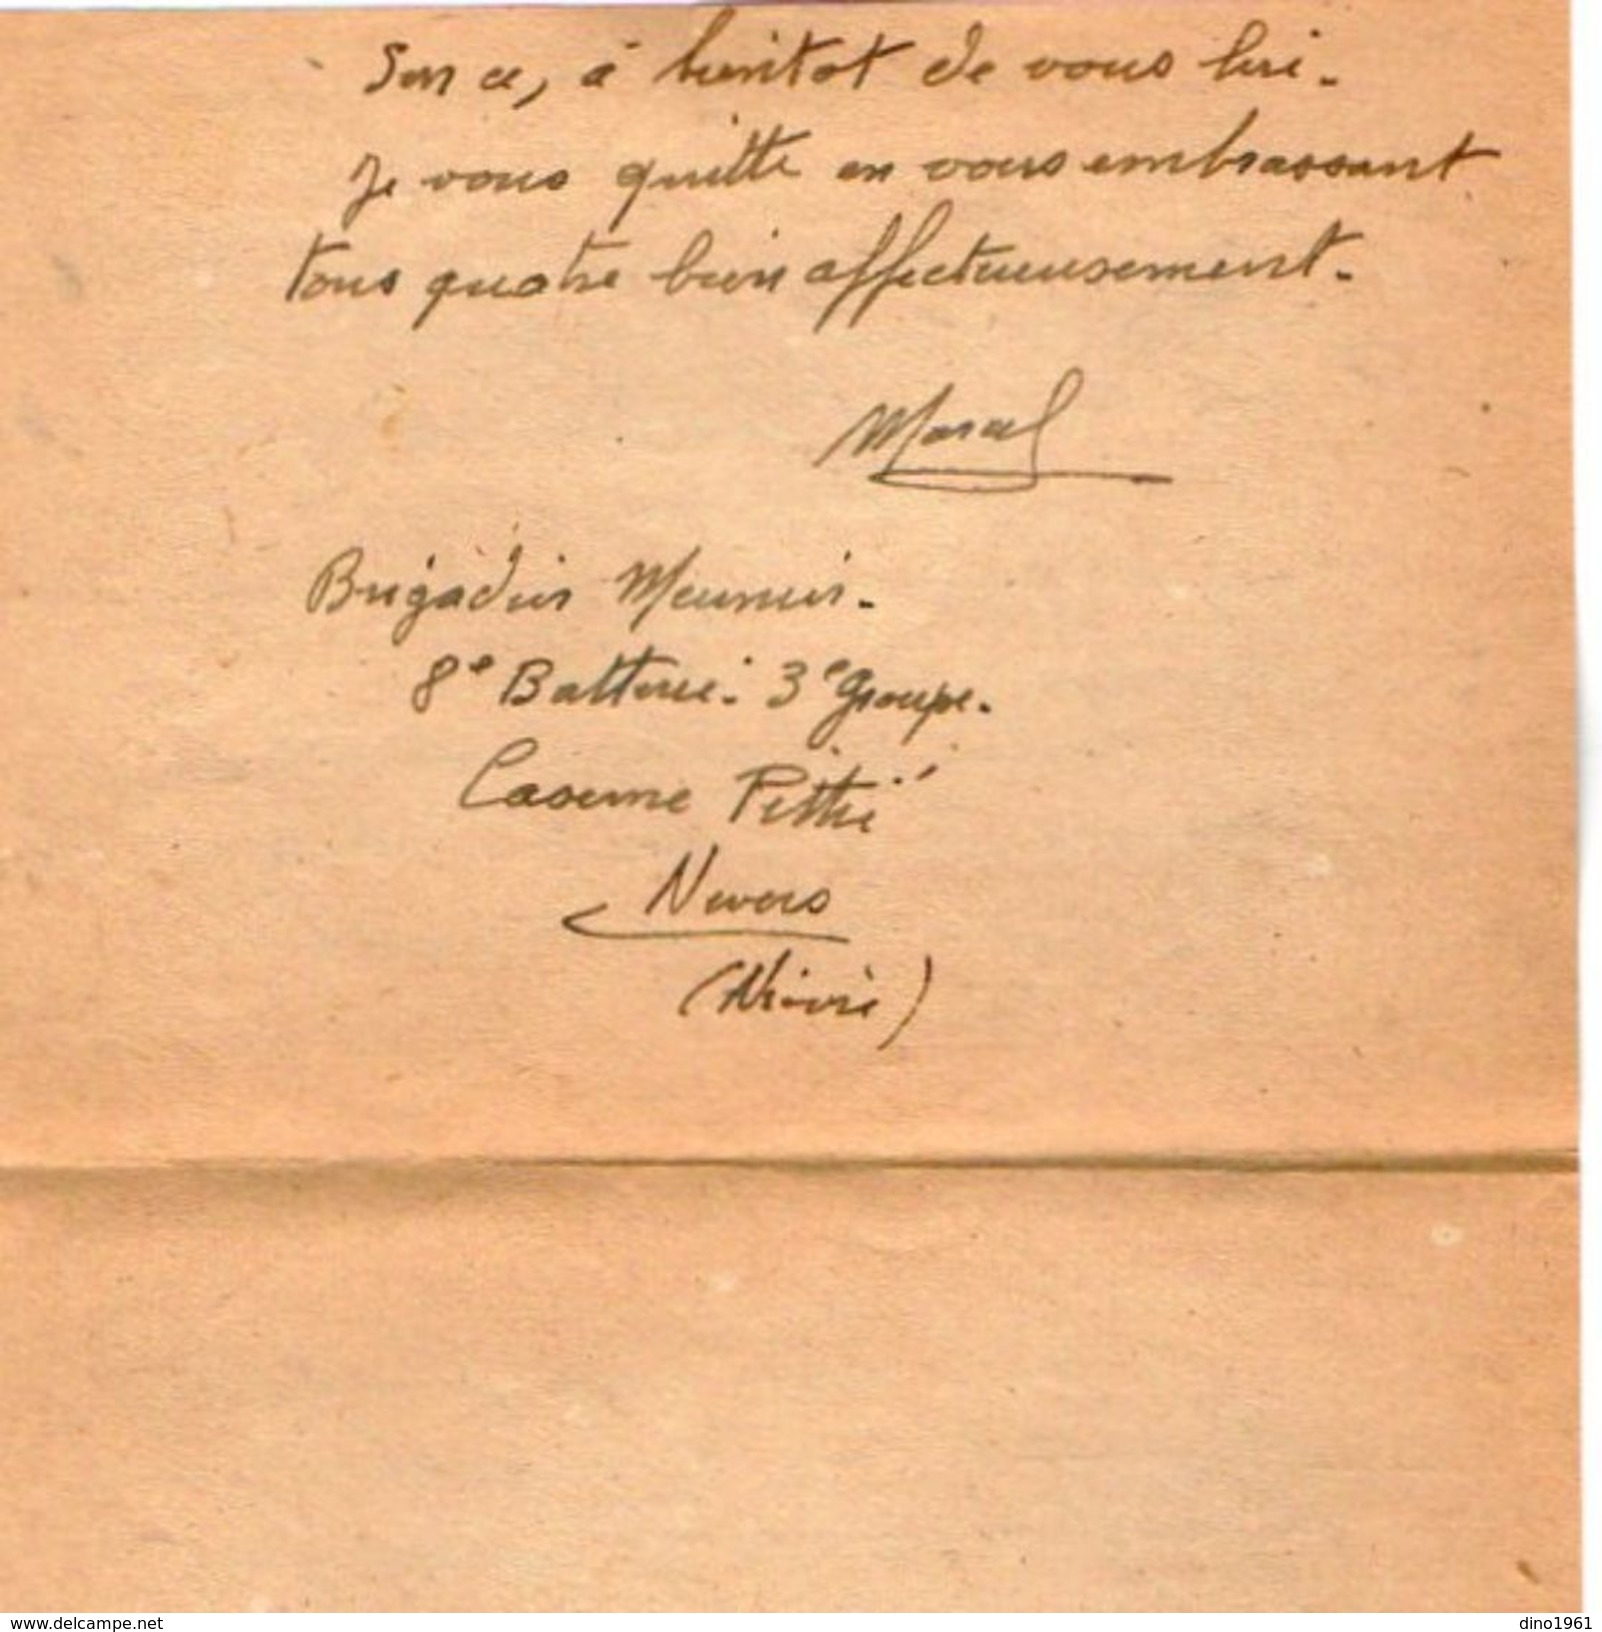 Sur ce, à bientot de vous lire.
Je vous quitte en vous embrassant
tous quatre bien affectueusement.
Marcel
Brigadier Meunier.
8e Batterie. 3e Groupe.
Caserne Pittié
Nevers
(Nièvre)
www.delcampe.net
dino1961